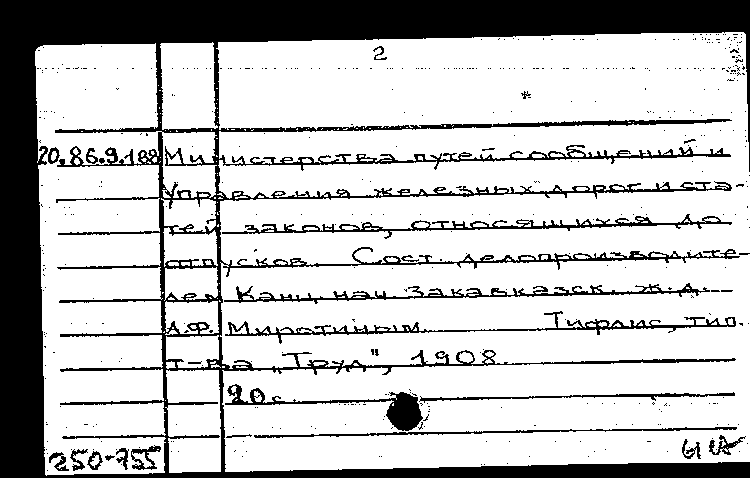 2
*
20.86.9.188 Министерства путей сообщений и
Управления железных дорог и ста-
тей законов, относящихся до
отпусков. Сост. делопроизводите-
лем Канц. нач. Закавказск. ж.д.
А.Ф. Миротиным. Тифлис, тип.
т-ва „Труд", 1908.
20 с.
250-755